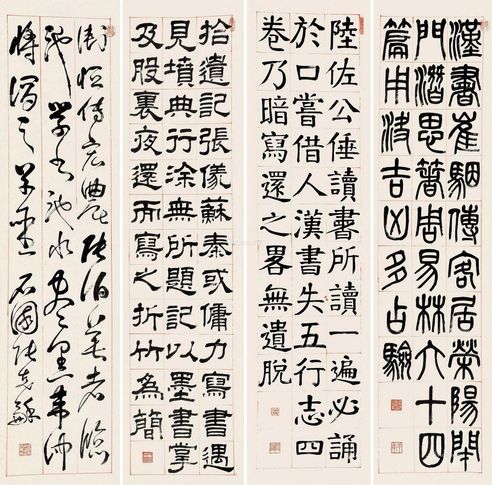 漢書崔駰傳客居榮陽閉
門潛思著周易林六十四
篇用決吉凶多占驗
陸佐公倕讀書所讀一遍必誦
於口嘗借人漢書失五行志四
卷乃暗寫還之畧無遺脫
拾遺記張儀蘇秦或傭力寫書遇
見墳典行涂無所題記以墨書掌
及股裏夜還而寫之折竹為簡
衛恒傳宏農張伯英者臨
池學書池水盡黑韋仲
將謂之草聖 石園張克龢